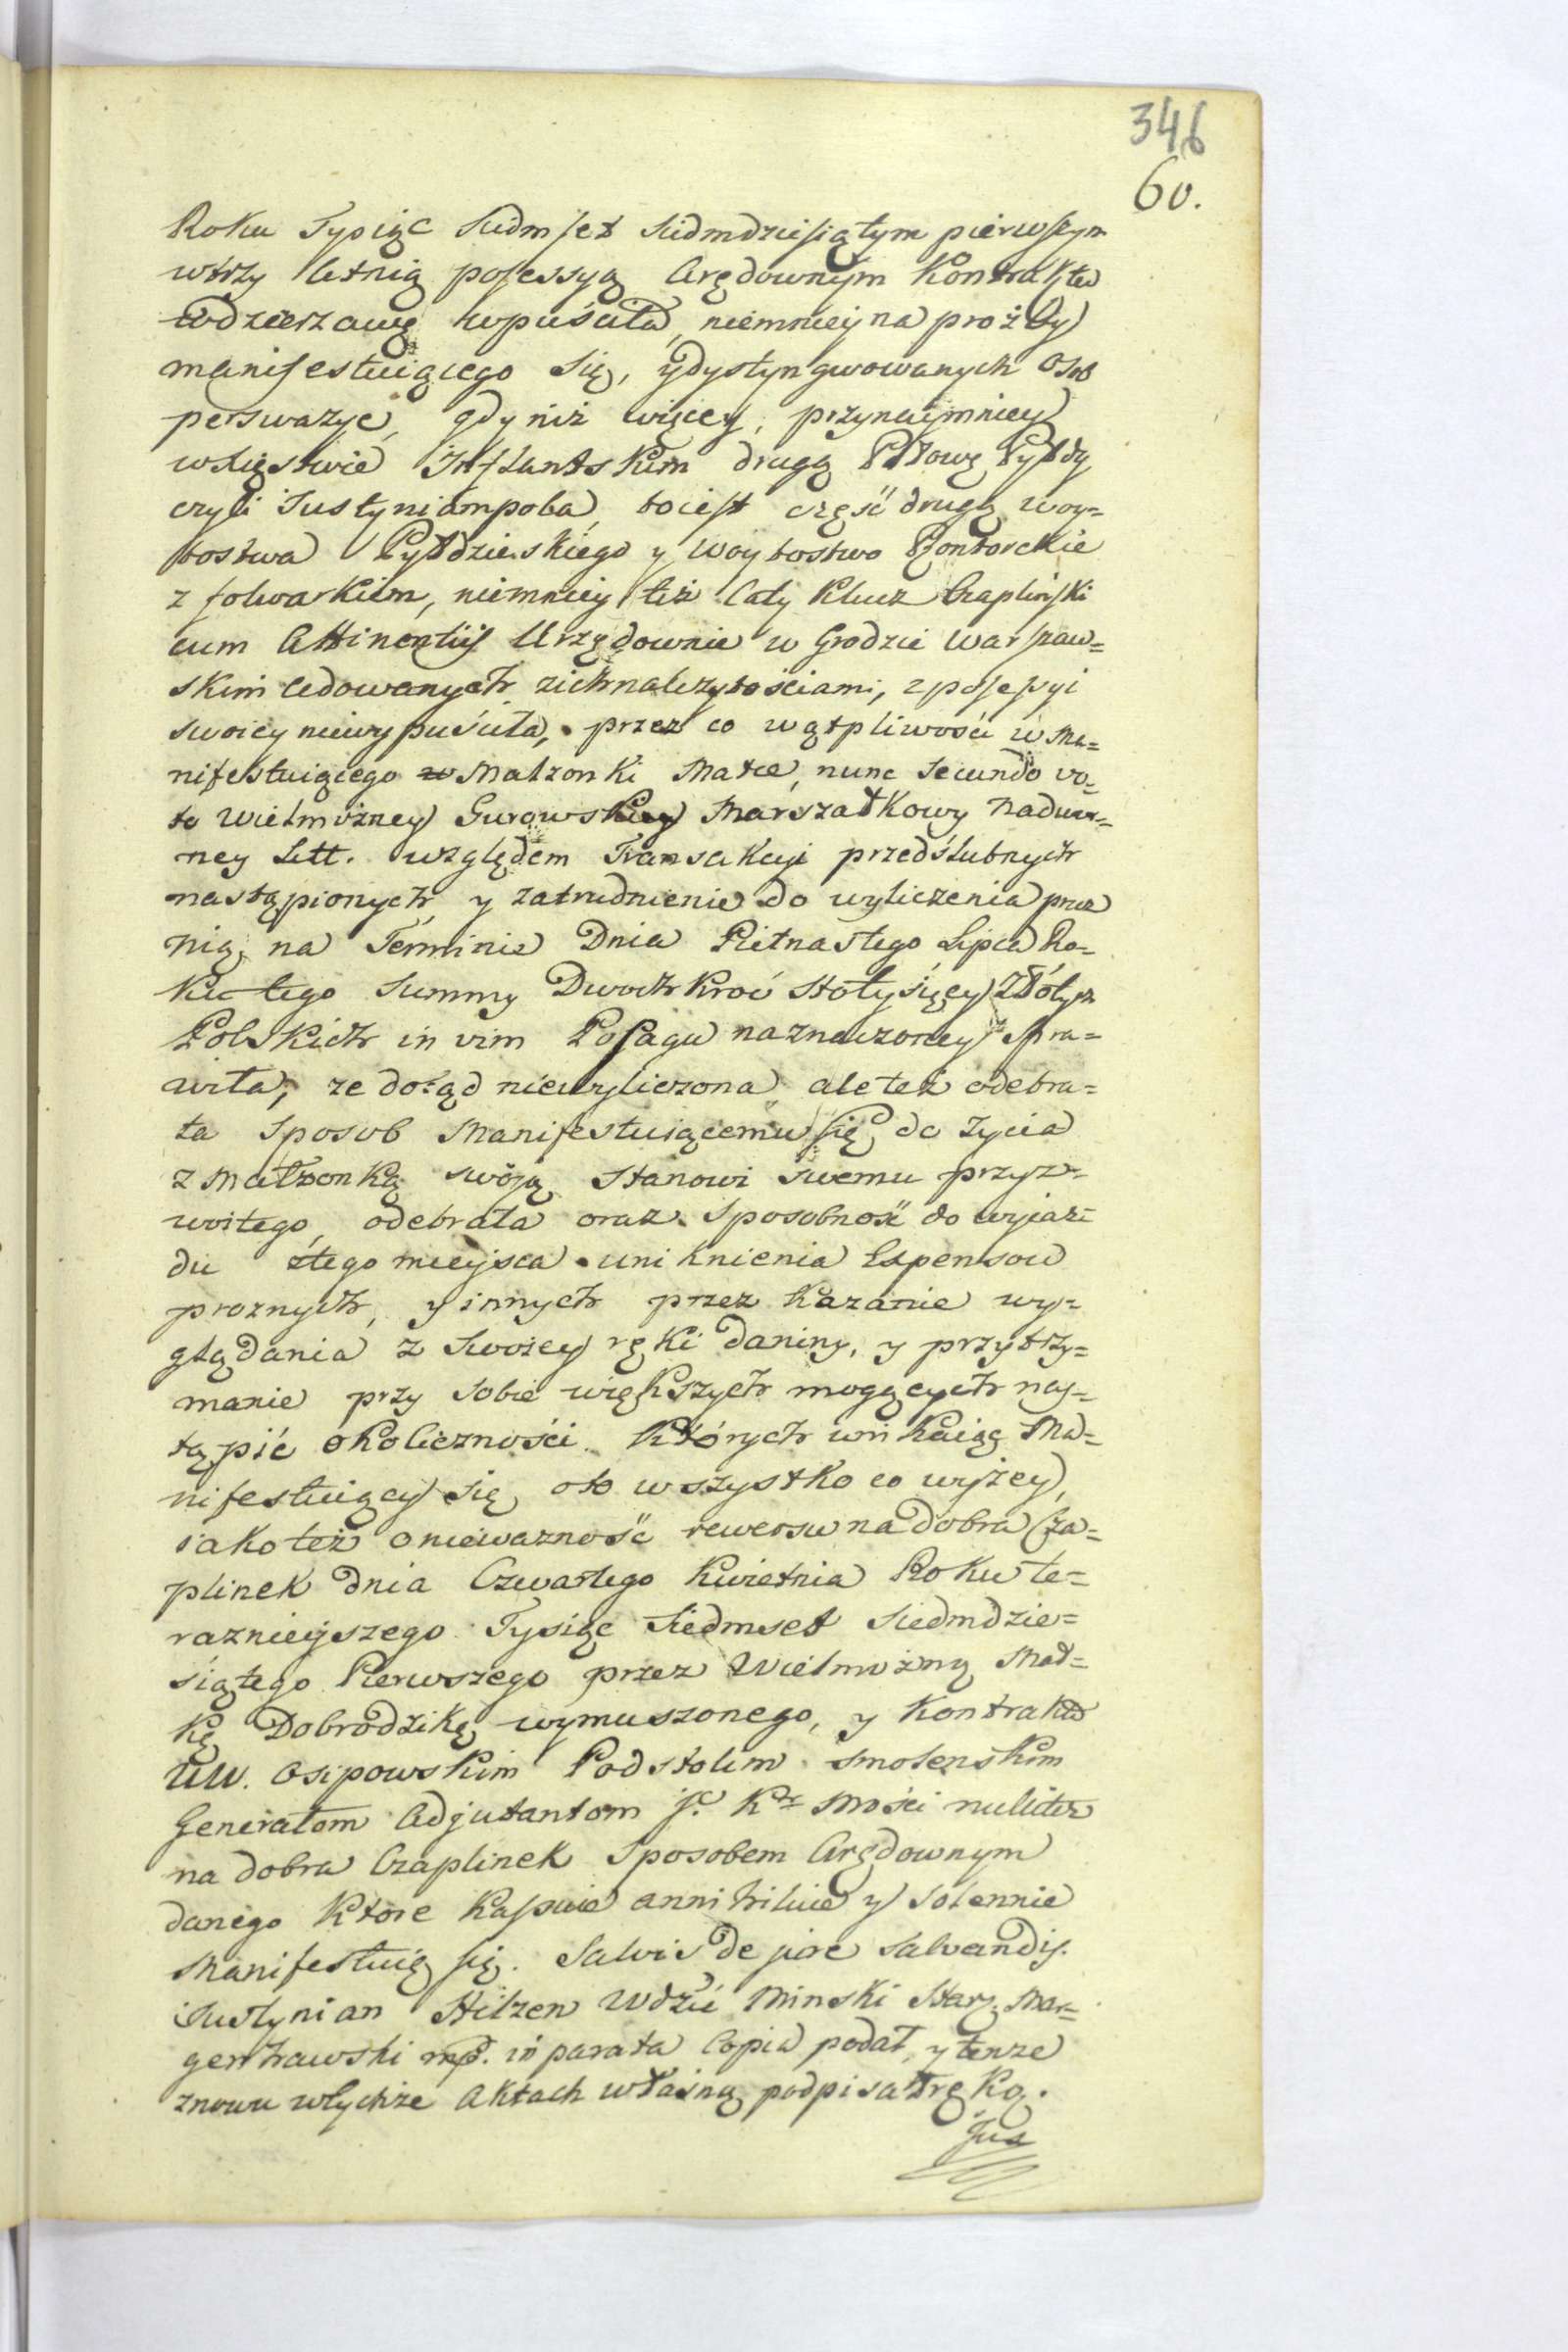 346
60.
Roku Tysiąc Siedmset Siedmdziesiątym pierwszym
wtrzy letnią possessyą Arędownym Kontraktem
wdzierzawę wypuściła, niemniey na prożby
manifestuiącego się, y dystyngwowanych osob
perswazye, gdy niż więcey, przynaymniey
wXięstwie Inflantskim drugą Połowę Pyłdy
czyli Justynianpola, toiest część drugą Woy=
tostwa Pyłdzieńskiego y Woytostwo Pontorckie
z folwarkiem, niemniey też cały Klucz Czapliński
cum Attinentiis Urzędownie w Grodzie Warszaw=
skim cedowanych zichnależytościami, z possessyi
swoiey niewypuściła, przez co wątpliwości u Ma=
nifestuiącego Małżonki Matce, nunc Secundo vo=
to Wielmożney Gurowskiey Marszałkowy Nadwor=
ney Litt. względem Transakcyi przedślubnych
nastąpionych, y zatrudnienie do wyliczenia przez
nią, na Terminie Dnia Pietnastego Lipca Ro=
ku tego Summy Dwochkroć Stotysięcy Złotych
Polskich in vim Posagu naznaczoney spra=
wiła, ze dotąd niewyliczona, ale też odebra=
ła Sposob Manifestuiącemu się do życia
z Małżonką swoją Stanowi swemu przyz=
woitego, odebrała oraz Sposobność do wyiaz=
du ztego mieysca uniknienia Expensow
proznych, y innych przez Kazanie wy=
glądania z Swoiey ręki daniny, y przytrzy=
manie przy sobie większych mogących nas=
tąpić okoliczności. Których unikaiąc Ma=
nifestuiący się, oto wszystko co wyżey,
iakoteż oniewazność rewersu na dobra Cza=
plinek dnia Czwartego Kwietnia Roku te=
raznieyszego Tysiąc Siedmset Siedmdzie=
siątego Pierwszego przez Wielmożną Mat=
kę Dobrodzikę wymuszonego, y Kontraktu
UW. Osipowskim Podstolim Smoleńskim
Generałom Adjutantom J. Kr. Mości nuliter
na dobra Czaplinek Sposobem Arędownym
danego które Kassuie annihiluie y Solennie
Manifestuie się. Salvis de jure Salvandis.
Justynian Hilzen Wdzić Minski Star. Mar=
genhawski mp. in parata Copia podał, y tenze
znowu wtychże Aktach własną podpisał ręką.
Jus